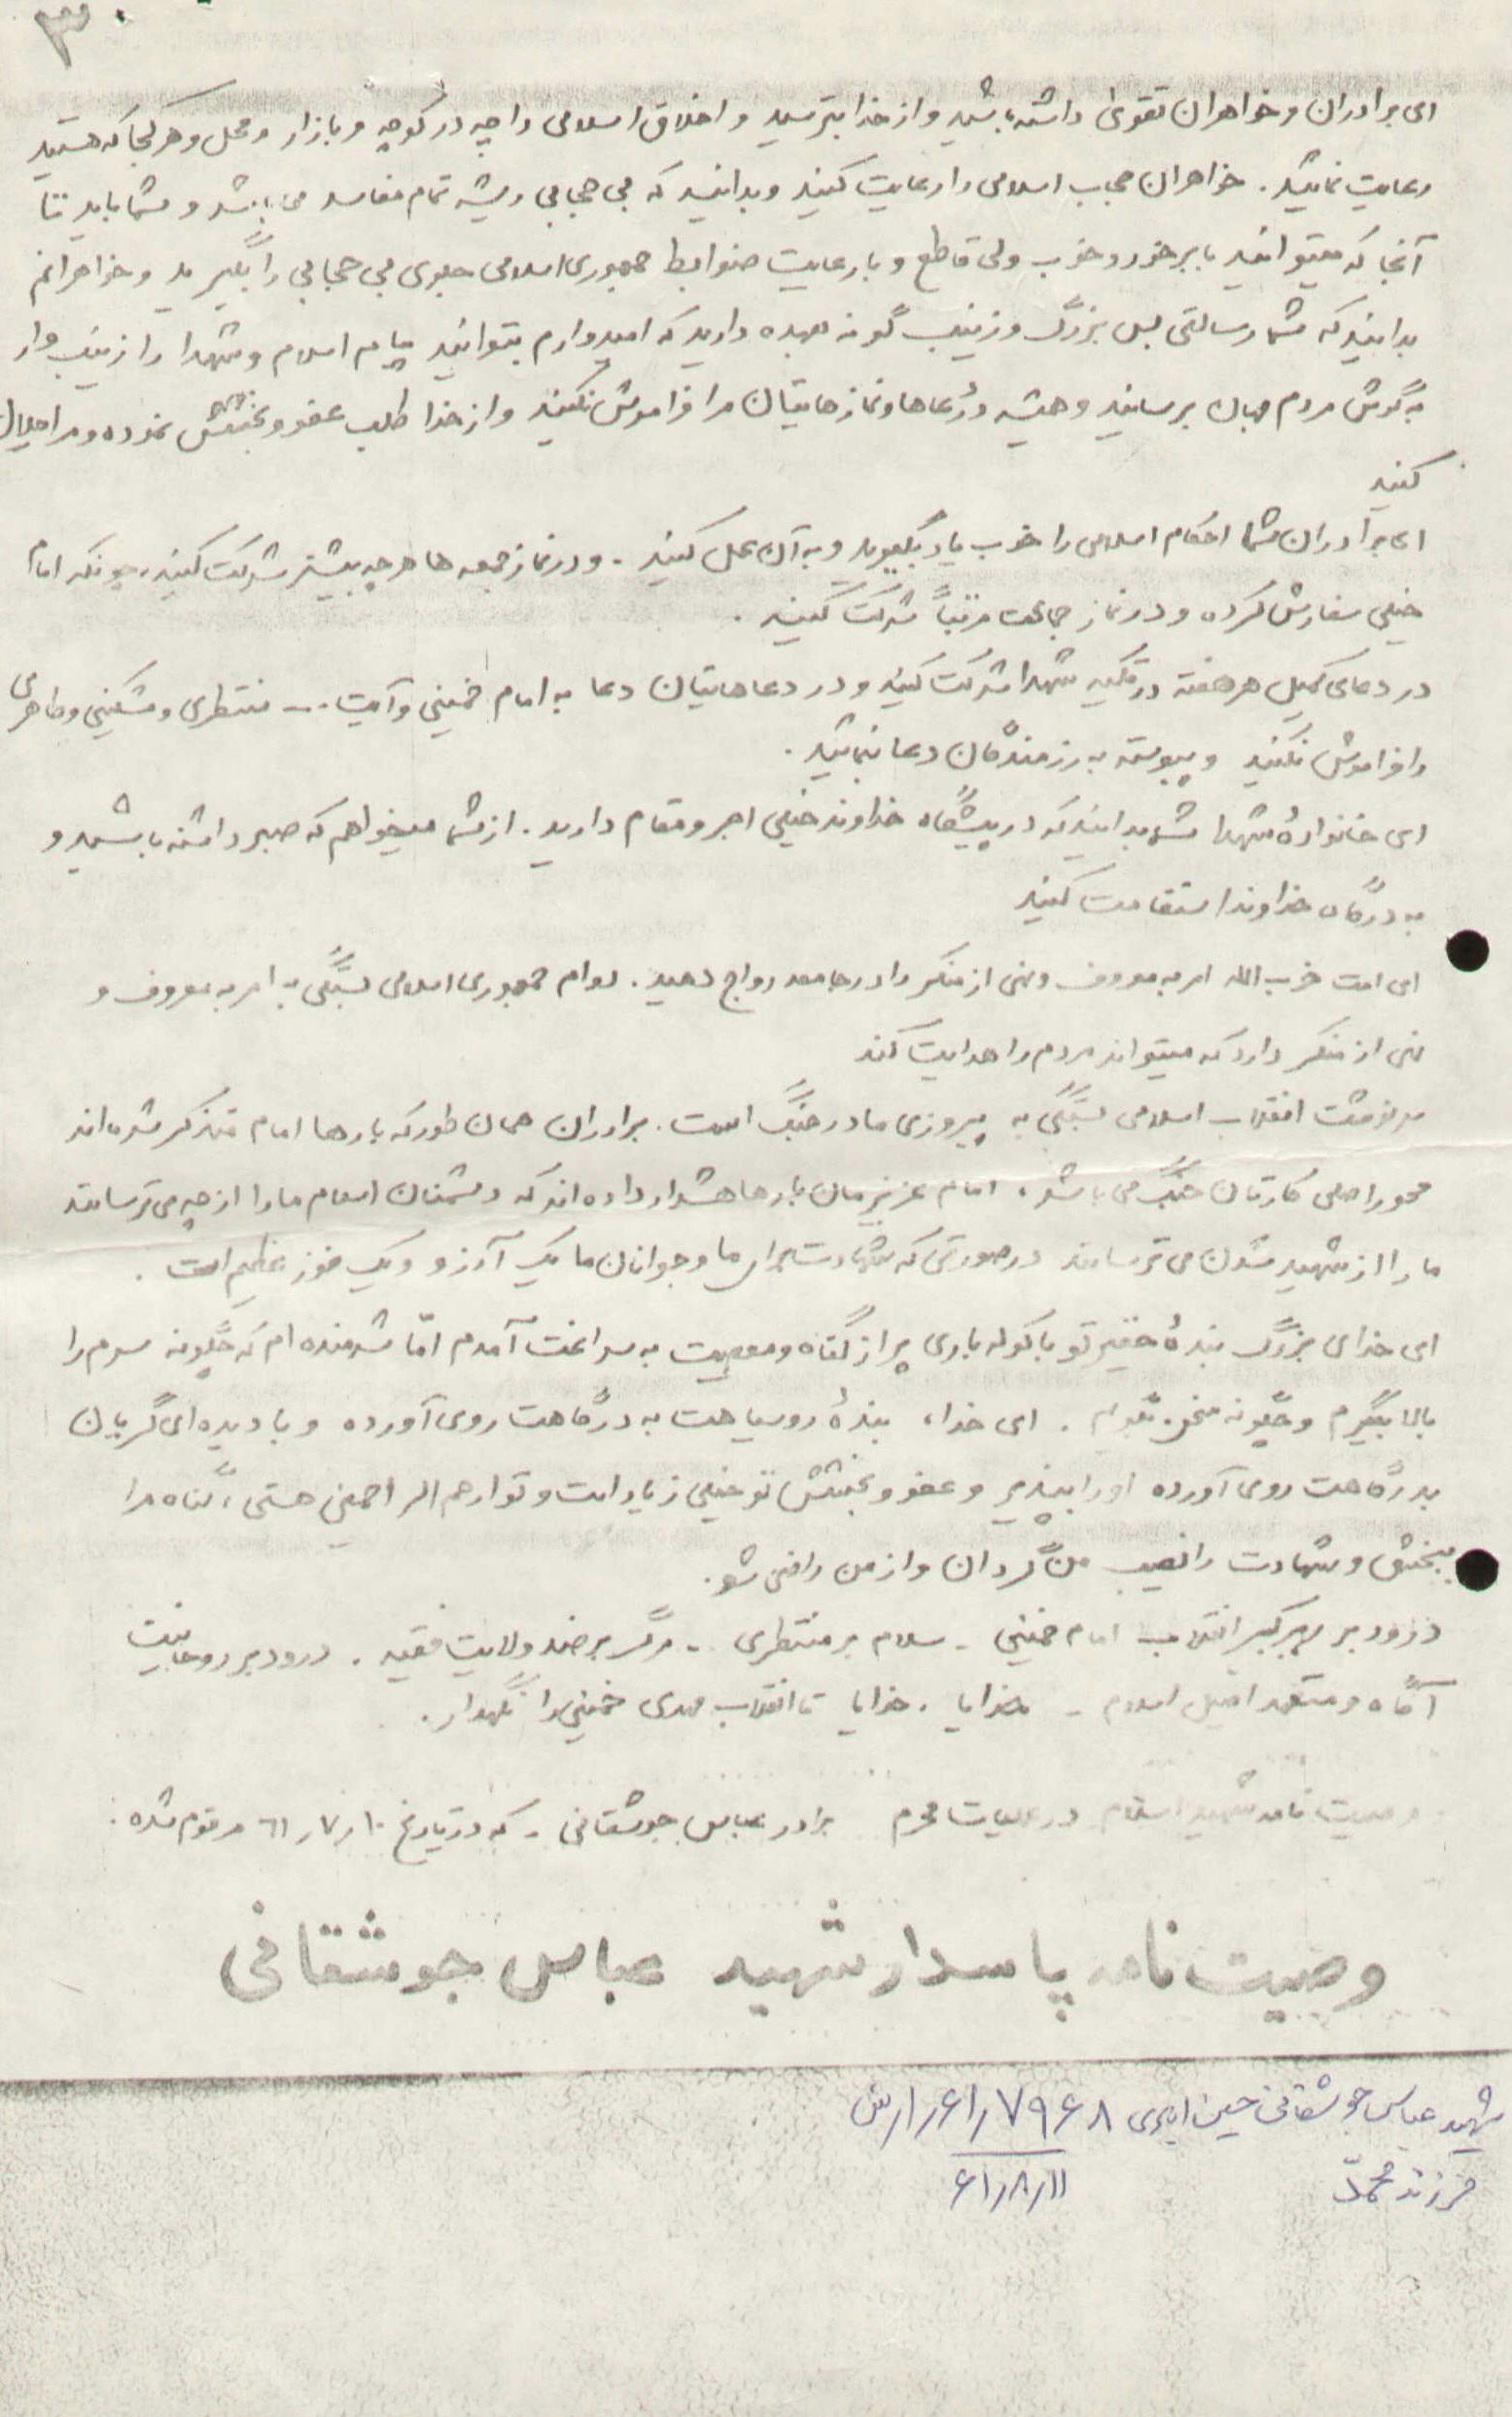 ۳۰
ای برادران و خواهران تقوی داشته باشید و از خدا بترسید و اخلاق اسلامی را چه در کوچه و بازار و محل و هر کجا که هستید
رعایت نمائید. خواهران حجاب اسلامی را رعایت کنید و بدانید که بی حجابی ریشه تمام مفاسد می باشد و شما باید تا
آنجا که میتوانید با برخورد خوب ولی قاطع و با رعایت ضوابط جمهوری اسلامی جلوی بی حجابی را بگیرید و خواهرانم
بدانید که شما رسالتی بس بزرگ و زینب گونه بعهده دارید که امیدوارم بتوانید پیام اسلام و شهدا را زینب وار
به گوش مردم جهان برسانید و همیشه در دعاها و نمازهایتان مرا فراموش نکنید و از خدا طلب عفو و بخشش نموده و مرا حلال
کنید
ای برادران شما احکام اسلامی را خوب یاد بگیرید و به آن عمل کنید - و در نماز جمعه ها هر چه بیشتر شرکت کنید، چونکه امام
خیلی سفارش کرده و در نماز جماعت مرتباً شرکت کنید.
در دعای کمیل هر هفته در تکیه شهدا شرکت کنید و در دعاهایتان دعا به امام خمینی و آیت ... منتظری و مشکینی و طاهری
را فراموش نکنید و پیوسته به رزمندگان دعا بنمائید.
ای خانوادهٔ شهدا شما بدانید که در پیشگاه خداوند خیلی اجر و مقام دارید. از شما میخواهم که صبر داشته باشید و
به درگاه خداوند استقامت کنید
ای امت حزب الله امر به معروف و نهی از منکر را در جامعه رواج دهید. دوام جمهوری اسلامی بستگی به امر به معروف و
نهی از منکر دارد که میتواند مردم را هدایت کند
سرنوشت انقلاب اسلامی بستگی به پیروزی ما در جنگ است. برادران همان طور که بارها امام متذکر شده اند
محور اصلی کارتان جنگ می باشد، امام عزیزمان بارها هشدار داده اند که دشمنان اسلام ما را از چه می ترسانند
ما را از شهید شدن می ترسانند در صورتی که شهادت برای ما و جوانان ما یک آرزو و یک فوز عظیم است.
ای خدای بزرگ بندهٔ حقیر تو با کوله باری پر از گناه و معصیت به سراغت آمدم امّا شرمنده ام که چگونه سرم را
بالا بگیرم و چگونه سخن بگویم. ای خدا، بندهٔ روسیاهت به درگاهت روی آورده و با دیده ای گریان
بدرگاهت روی آورده او را بپذیر و عفو و بخشش تو خیلی زیاد است و تو ارحم الراحمین هستی، گناه مرا
ببخش و شهادت را نصیب من گردان و از من راضی شو.
درود بر رهبر کبیر انقلاب امام خمینی - سلام بر منتظری - مرگ بر ضد ولایت فقیه. درود بر روحانیت
آگاه و متعهد اصیل اسلام - خدایا، خدایا تا انقلاب مهدی خمینی را نگهدار.
وصیت نامه شهید اسلام در عملیات محرم برادر عباس جوشقانی - که در تاریخ ۶۱/۷/۱۰ مرقوم شده.
وصیت نامه پاسدار شهید عباس جوشقانی
شهید عباس جوشقانی حسن ابادی ۷۹۶۸/۶۱/ا/ش
فرزند محمد ۶۱/۸/۱۱